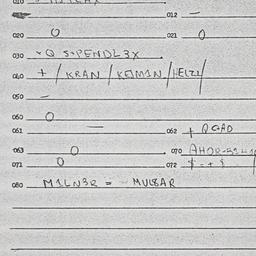 012 —
020 O 021 O
030 - Q S-PENDL3X
040 + / KRAN / KEIM1N / HELZL
050 —
060 O
061 — 062 + QGAD
063 O 070
071 O 072 $ - + $
080 M1LN3R = - MUL8AR